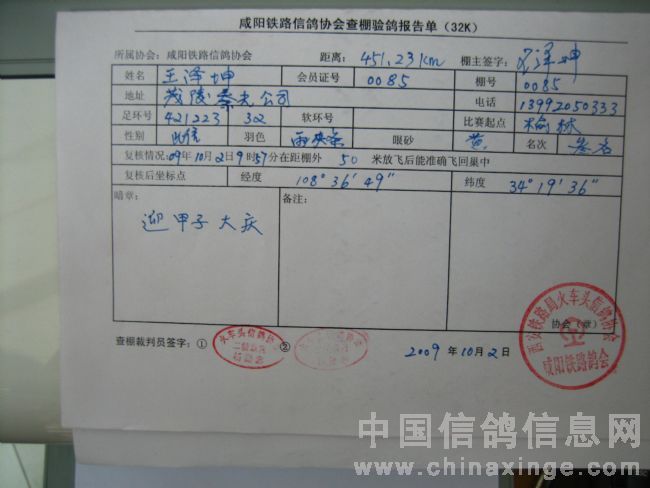 咸阳铁路信鸽协会查棚验鸽报告单（32K）
所属协会：咸阳铁路信鸽协会 距离：451.23km 棚主签字：王泽坤
姓名 王泽坤 会员证号 0085 棚号 0085
地址 茂陵秦光公司 电话 13992050333
足环号 421223 302 软环号 比赛起点 榆林
性别 羽色 雨夹条 眼砂 黄 名次
复核情况：09年10月2日9时57分在距棚外 50 米放飞后能准确飞回巢中
复核后坐标点 经度 108°36'49" 纬度 34°19'36"
暗章： 备注：
迎甲子大庆
协会（章）
西安铁路局火车头信鸽协会
咸阳铁路鸽会
查棚裁判员签字：① ②
火车头信鸽协
2009年10月2日
中国信鸽信息网
www.chinaxinge.com